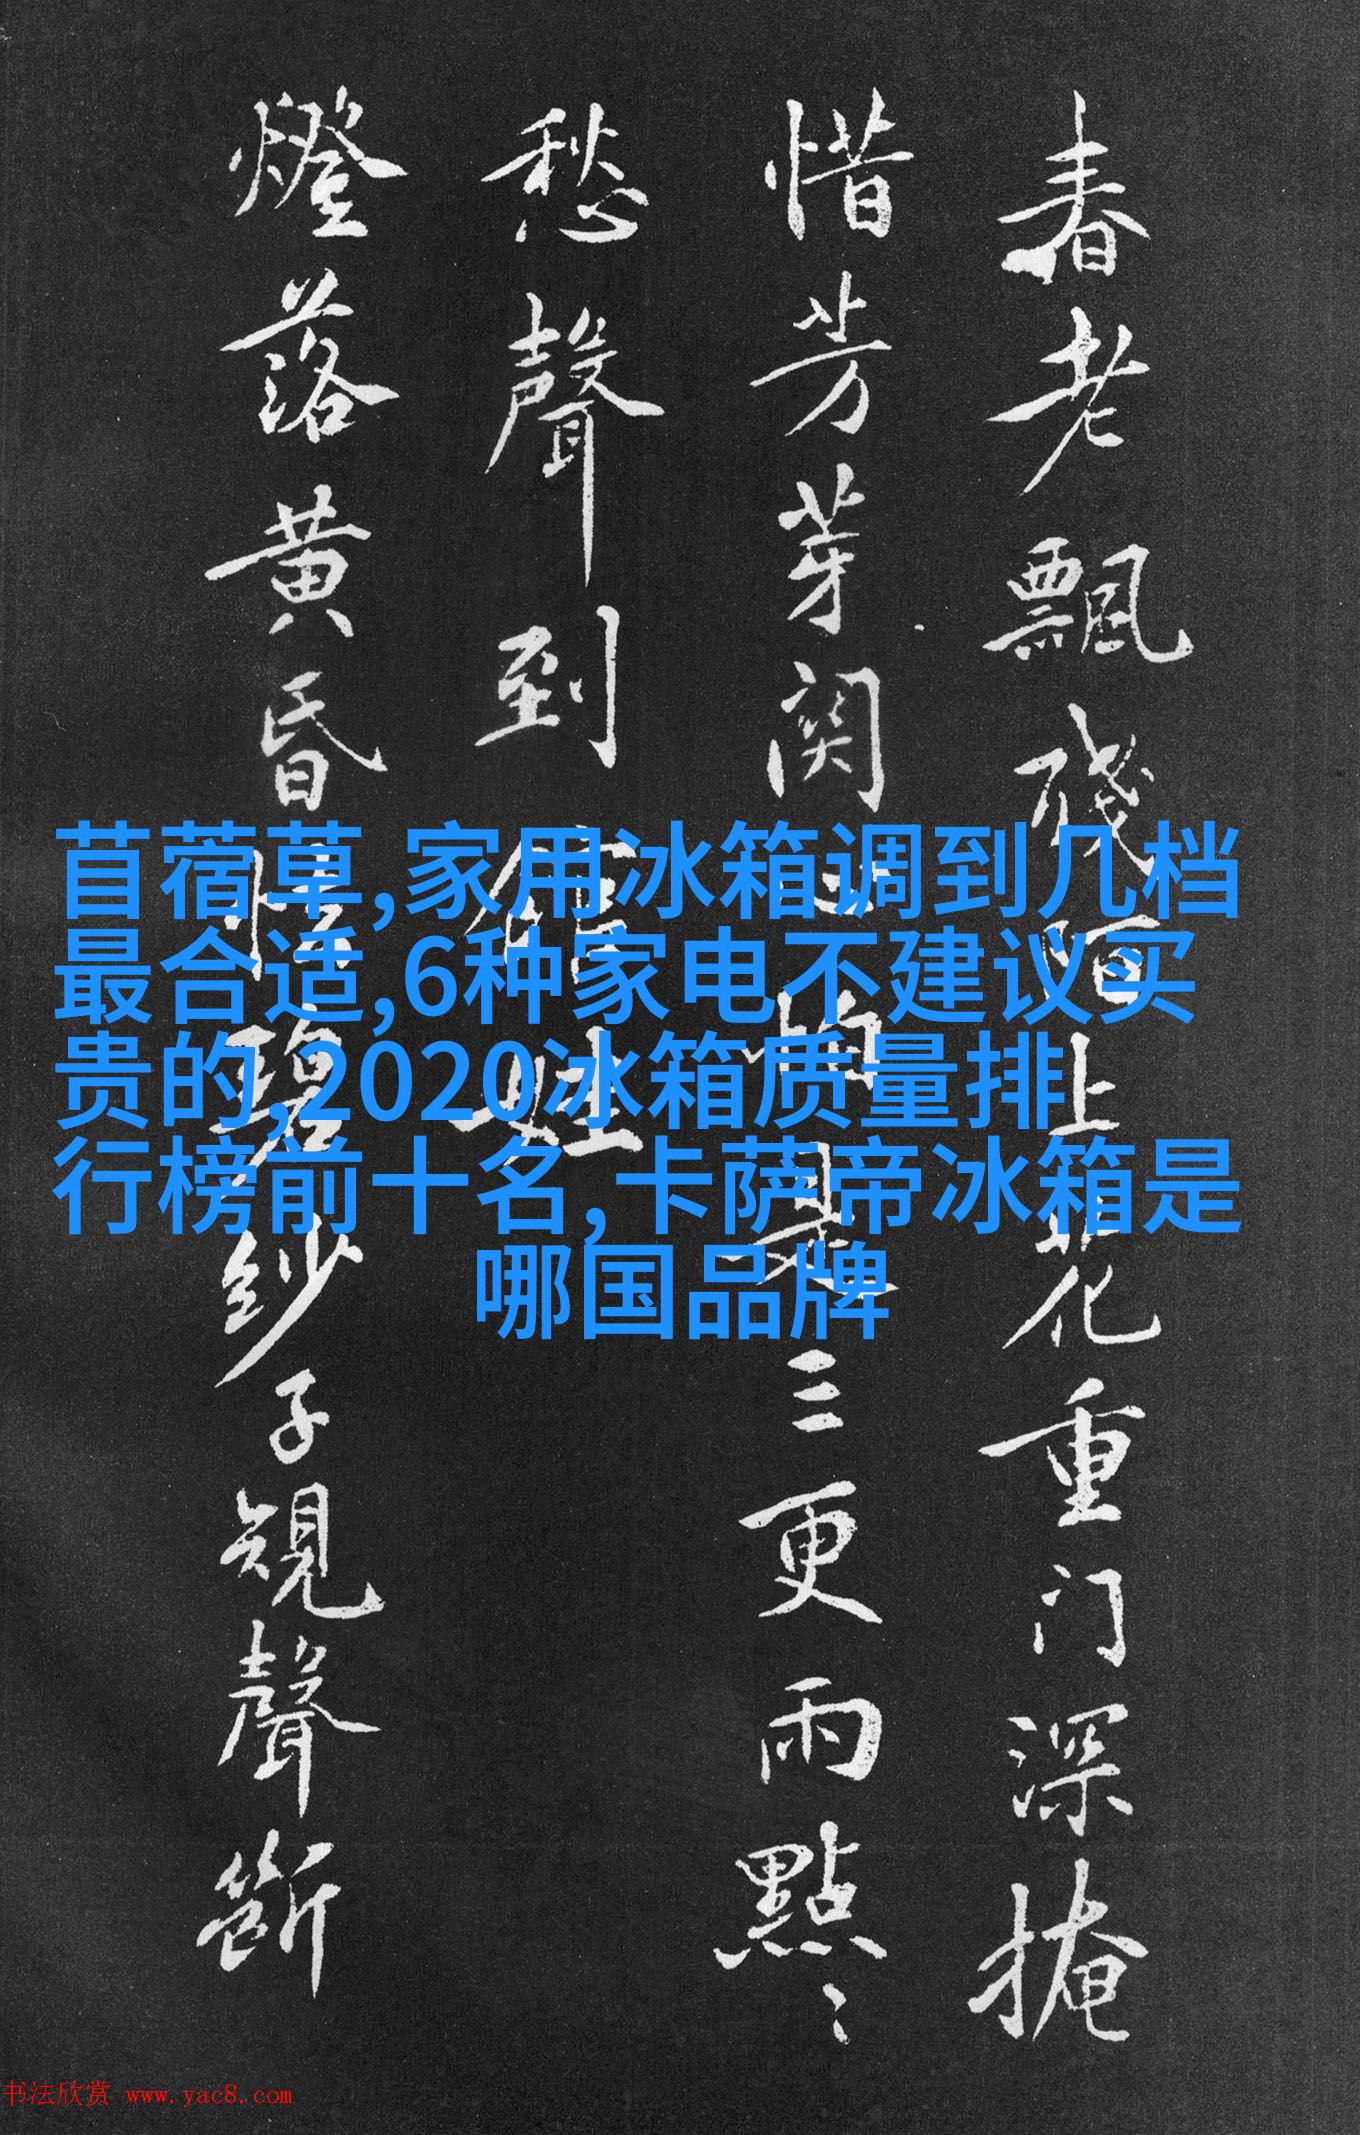 春老飄殘陌上花重门深掩
惜芳芽怕是三更雨點
愁聲到館娃
燈落黄昏碧紗子規聲斷
苜蓿草,家用冰箱调到几档
最合适,6种家电不建议买
贵的,2020冰箱质量排
行榜前十名,卡萨帝冰箱是
哪国品牌
书法欣赏 www.yac8.com